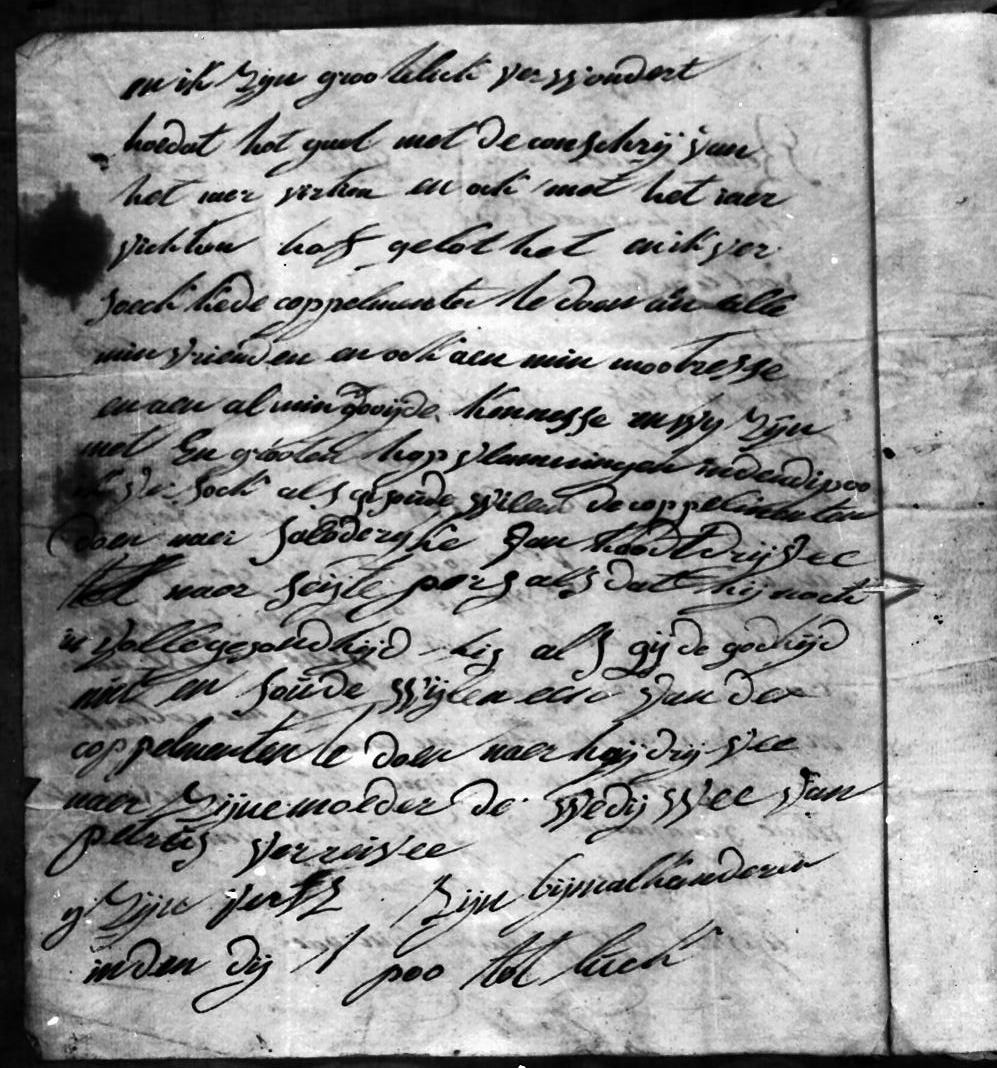 en ik zijn grootelick verwondert
hoedat het gaet met de conschrij van
het iaer virtien en ock met het iaer
vichtien haf gelot het en ik ver
soeck hede coppelmenten te doen an alle
min vrienden en ock aen min mootresse
en aen al min gooijde kennesse en wij zijn
met En grooten hop vlamningen in den dipoo
ik ver sock als gij soude willen de coppelmenten
doen naer
het naer seijle pers als dat hij noch
in volle gesondhijd his als gij de godhijd
niet en soude wijlen eens van der
coppelmenten te doen naer hij drij vee
naer Zijne moeder de wedij wee van
petrus verreivee
Zijn bij malkanderen
in den dij poo tot luck